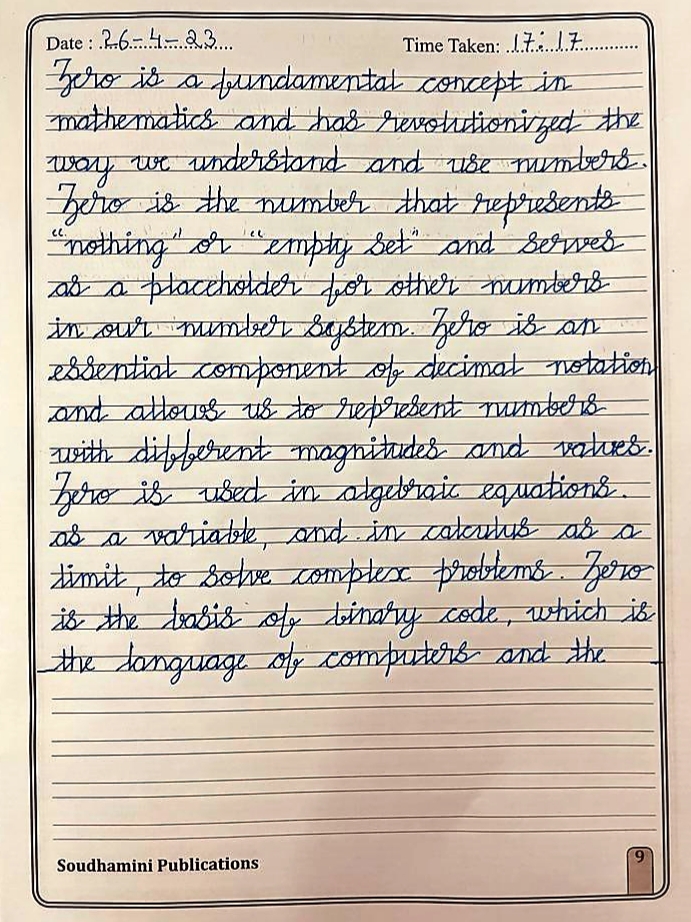 Date : 26-4-23 Time Taken: 17:17
Zero is a fundamental concept in
mathematics and has revolutionized the
way we understand and use numbers.
Zero is the number that represents
"nothing" or "empty set" and serves
as a placeholder for other numbers
in our number system. Zero is an
essential component of decimal notation
and allows us to represent numbers
with different magnitudes and values.
Zero is used in algebraic equations.
as a variable, and in calculus as a
limit, to solve complex problems. Zero
is the basis of binary code, which is
the language of computers and the
Soudhamini Publications
9